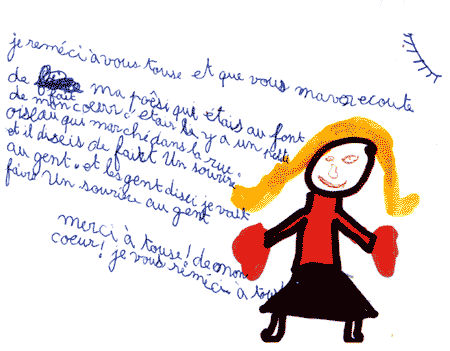 je reméci à vous touse et que vous mavoz ecouté
de ma poêsi qui etais au font
de mon coeur c etais la y a un
oiseau qui marché dans la rue.
et il diseis de fairt un sourire
au gent. et les gent disei je vait
faire un sourire au gent
merci à touse! de mon
coeur! je vous réméci à tous!